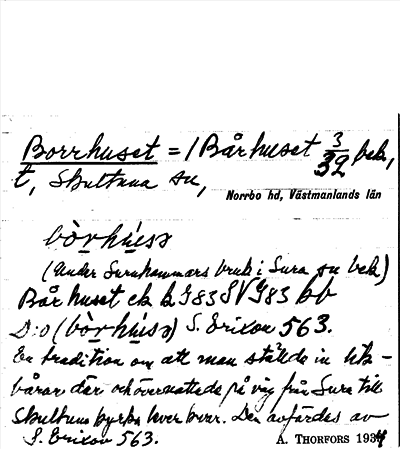 Borrhuset = / Bårhuset 3/32 bek,
t, Skultuna sn,
Norrbo hd, Västmanlands län
bòrhúsə
(Under Surahammars bruk i Sura sn bek)
Bårhuset ek k G83 SV G83 bb
D:o (bòrhúsə) S. Erixon 563.
En tradition om att man ställde in lik-
bårar där och övernattade på väg från Sura till
Skultuna kyrka lever kvar. Den avfärdas av
S. Erixon 563.
A. THORFORS 1934